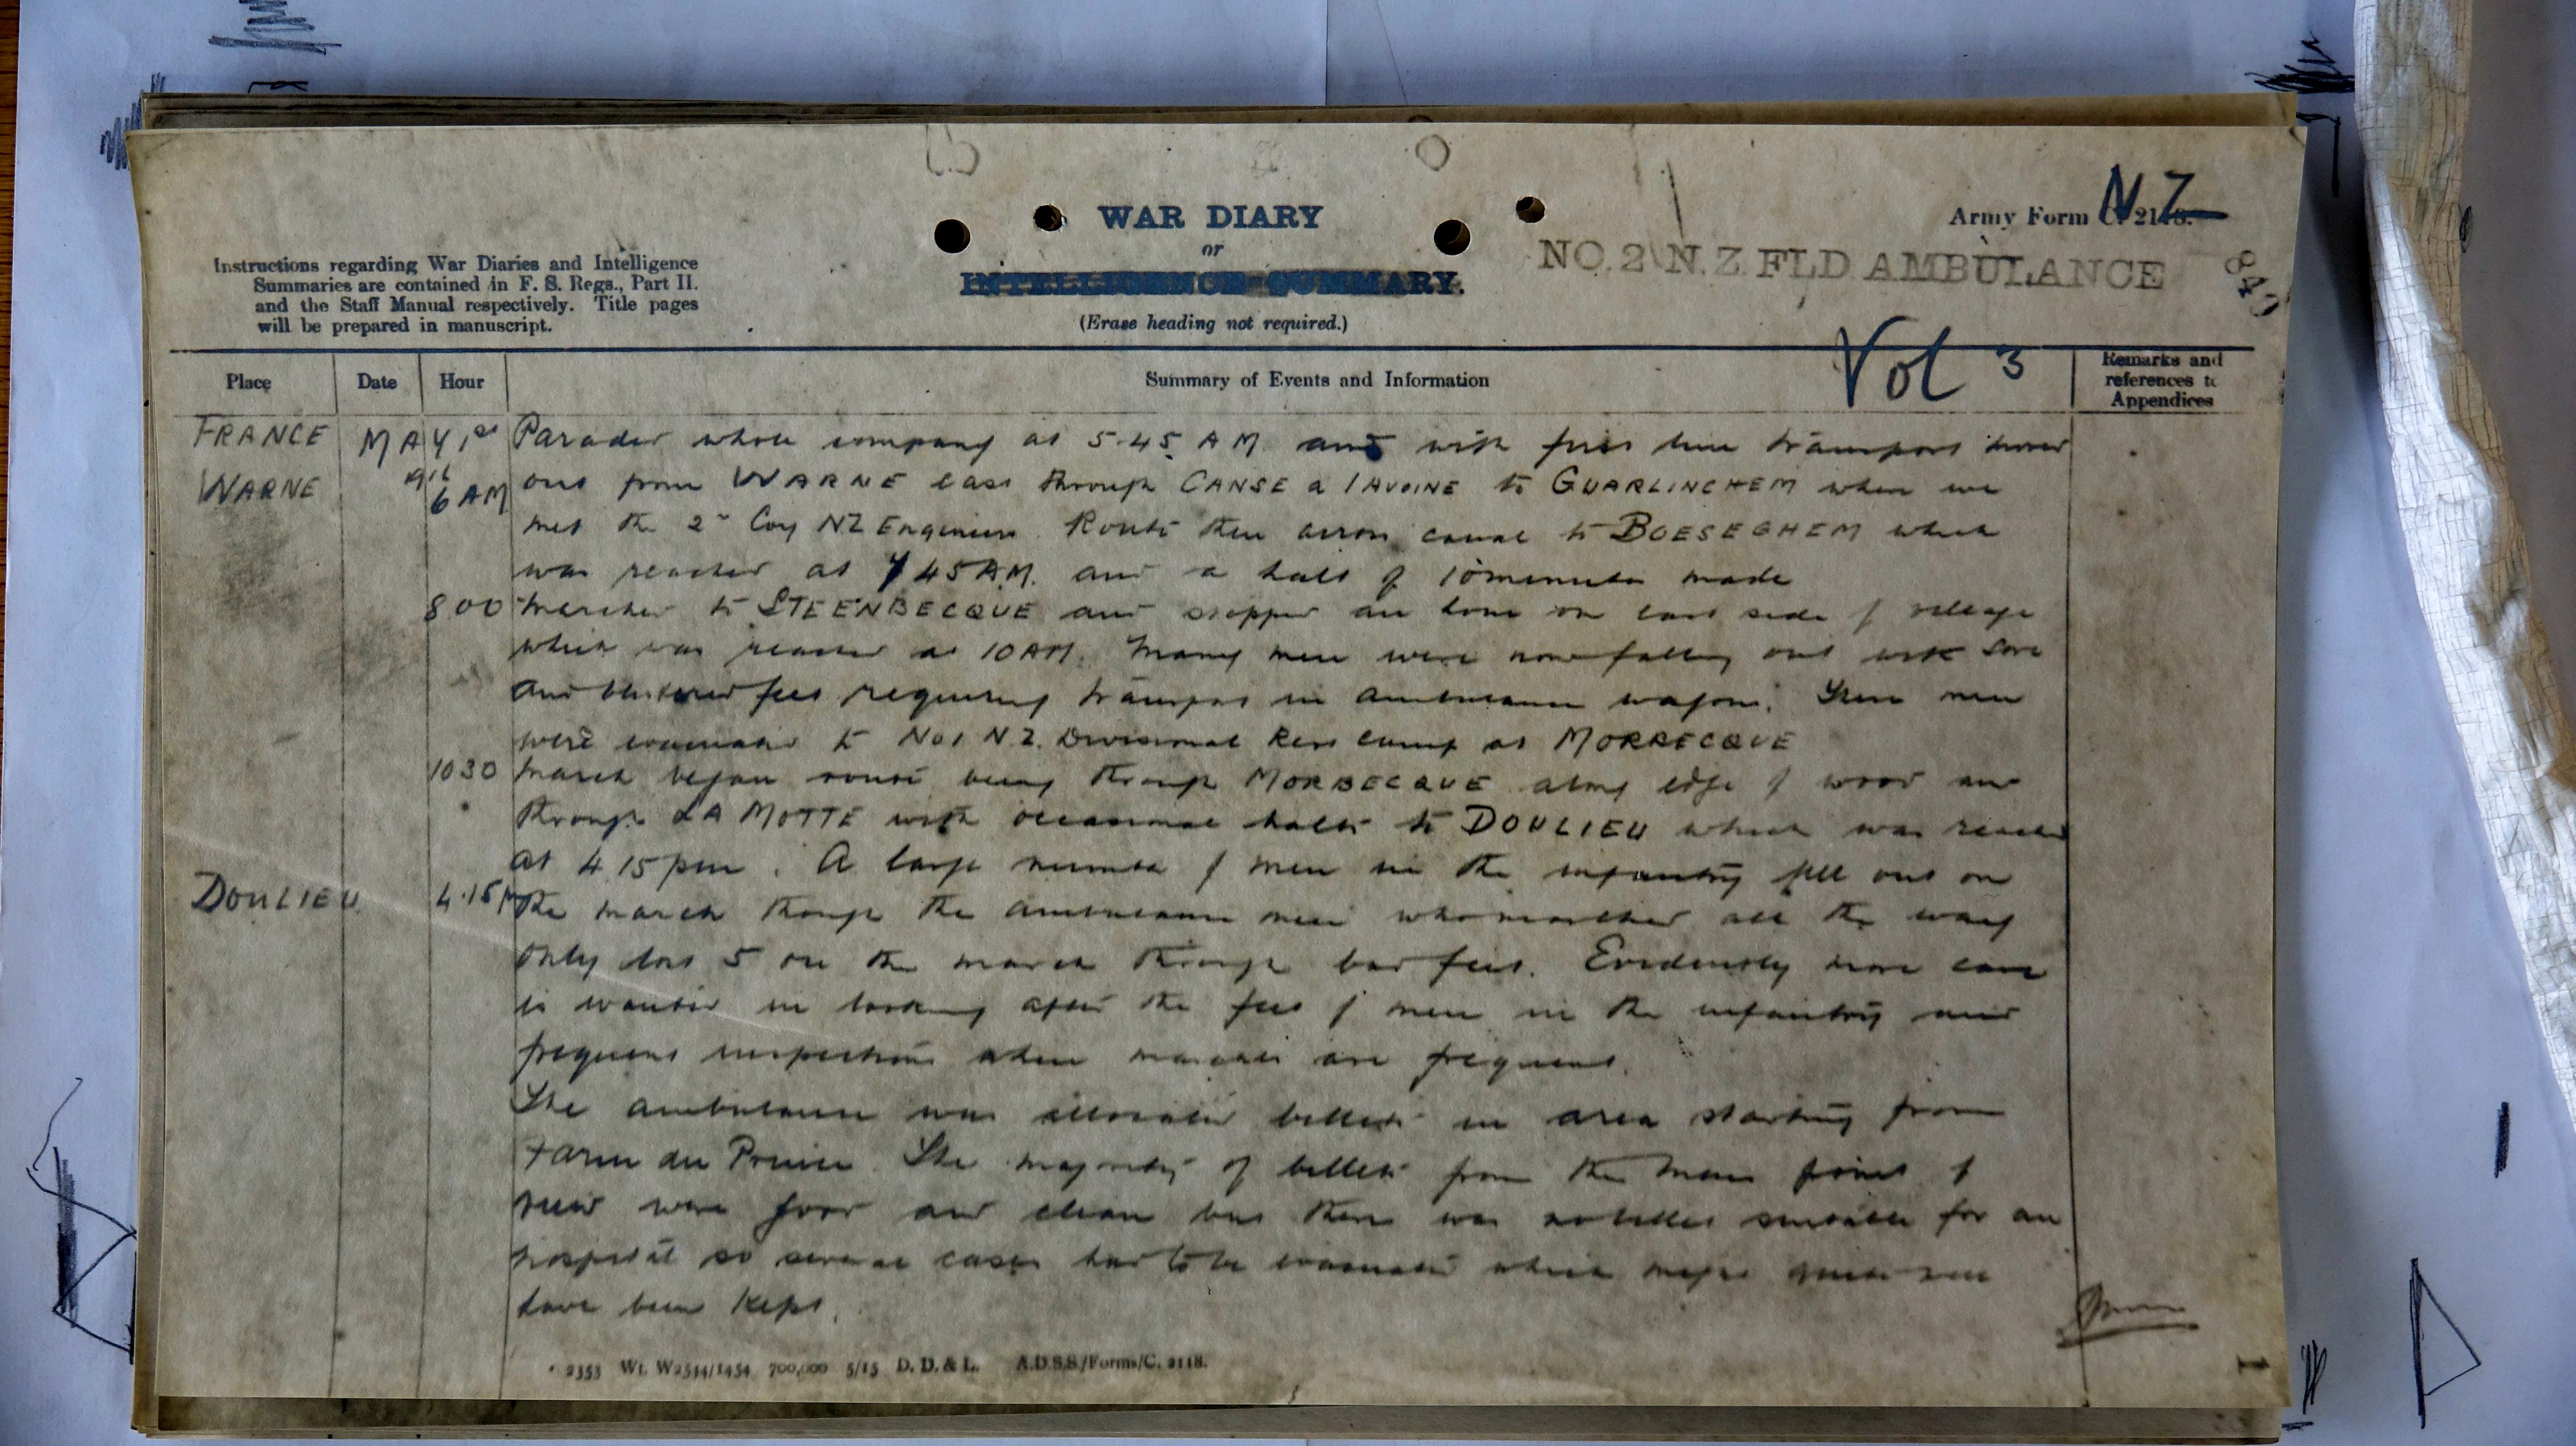 N Z
WAR DIARY
or
INTELLIGENCE SUMMARY.
(Erase heading not required.)
Army Form C. 2118.
NO. 2 N. Z FLD AMBULANCE
840
Instructions regarding War Diaries and Intelligence
Summaries are contained in F. S. Regs., Part II.
and the Staff Manual respectively. Title pages
will be prepared in manuscript.
Vol 3
Place Date Hour Summary of Events and Information Remarks and references to Appendices
FRANCE MAY 1st Paraded whole company at 5.45 AM. and with first line transport moved
WARNE 916 6 AM out from WARNE east through CANSE a l AVOINE to GUARLINCHEM where we
met the 2nd Coy NZ Engineers. Route then across canal to BOESEGHEM which
was reached at 7 45 AM. and a halt of 10 minutes made
8.00 marched to STEENBECQUE and stopped an hour on east side of village
which was reached at 10 AM. Many men were now falling out with sore
and blistered feet requiring transport in ambulance wagons. These men
were evacuated to No 1 N.Z. Divisional Rest Camp at MORBECQUE
1030 March began route being through MORBECQUE along edge of wood and
through LA MOTTE with occasional halts to DOULIEU which was reached
at 4.15 pm. A large number of men in the infantry fell out on
DOULIEU 4.15 PM the march though the ambulance men who marched all the way
only lost 5 on the march through bad feet. Evidently more care
is wanted in looking after the feet of men in the infantry and
frequent inspections when marches are frequent.
The ambulance was allocated billets in area starting from
Farm du Prince. The majority of billets from the mens point of
view were good and clean but there was no billet suitable for an
hospital so several cases had to be evacuated which might have
have been kept.
* 2353 Wt. W2544/1454 700,000 5/15 D. D. & L. A.D.S.S./Forms/C. 2118.
1